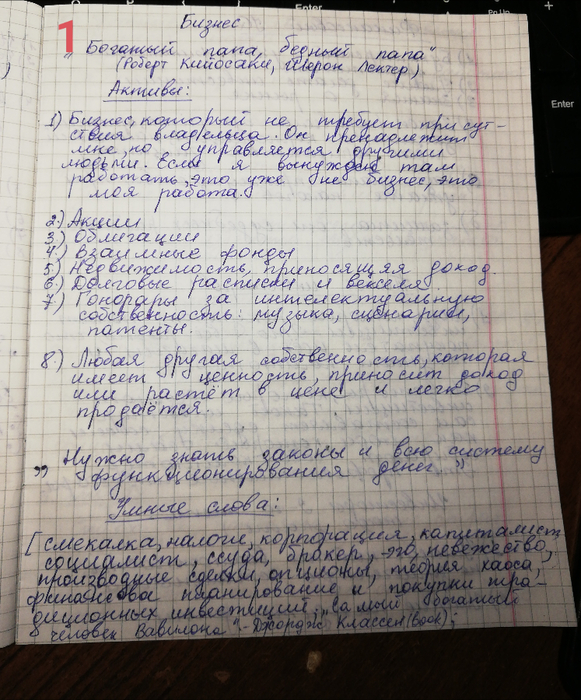 Бизнес
1
„Богатый папа, бедный папа"
(Роберт Кийосаки, Шерон Лектер)
Активы:
1) Бизнес, который не требует присут-
ствия владельца. Он пренадлежит
мне, но управляется другими
людьми. Если я вынужден там
работать, это уже не бизнес, это
моя работа.
2.) Акции
3.) Облигации
4.) Взаимные фонды
5) Недвижимость, приносящяя доход.
6) Долговые расписки и векселя.
7) Гонорары за интелектуальную
собственность: музыка, сценарии,
патенты.
8) Любая другая собственность, которая
имеет ценность, приносит доход
или растёт в цене и легко
продаётся.
„ Нужно знать законы и всю систему
функционирования денег "
Умные слова:
[смекалка, налоги, корпорация, капиталист
социалист, ссуда, брокер, эго, невежество,
производные сделки, опционы, теория хаоса,
планирование и покупки тра-
диционных инвестиций, „самый богатый
человек Вавилона" - Джордж Классен (book);
Enter
Enter